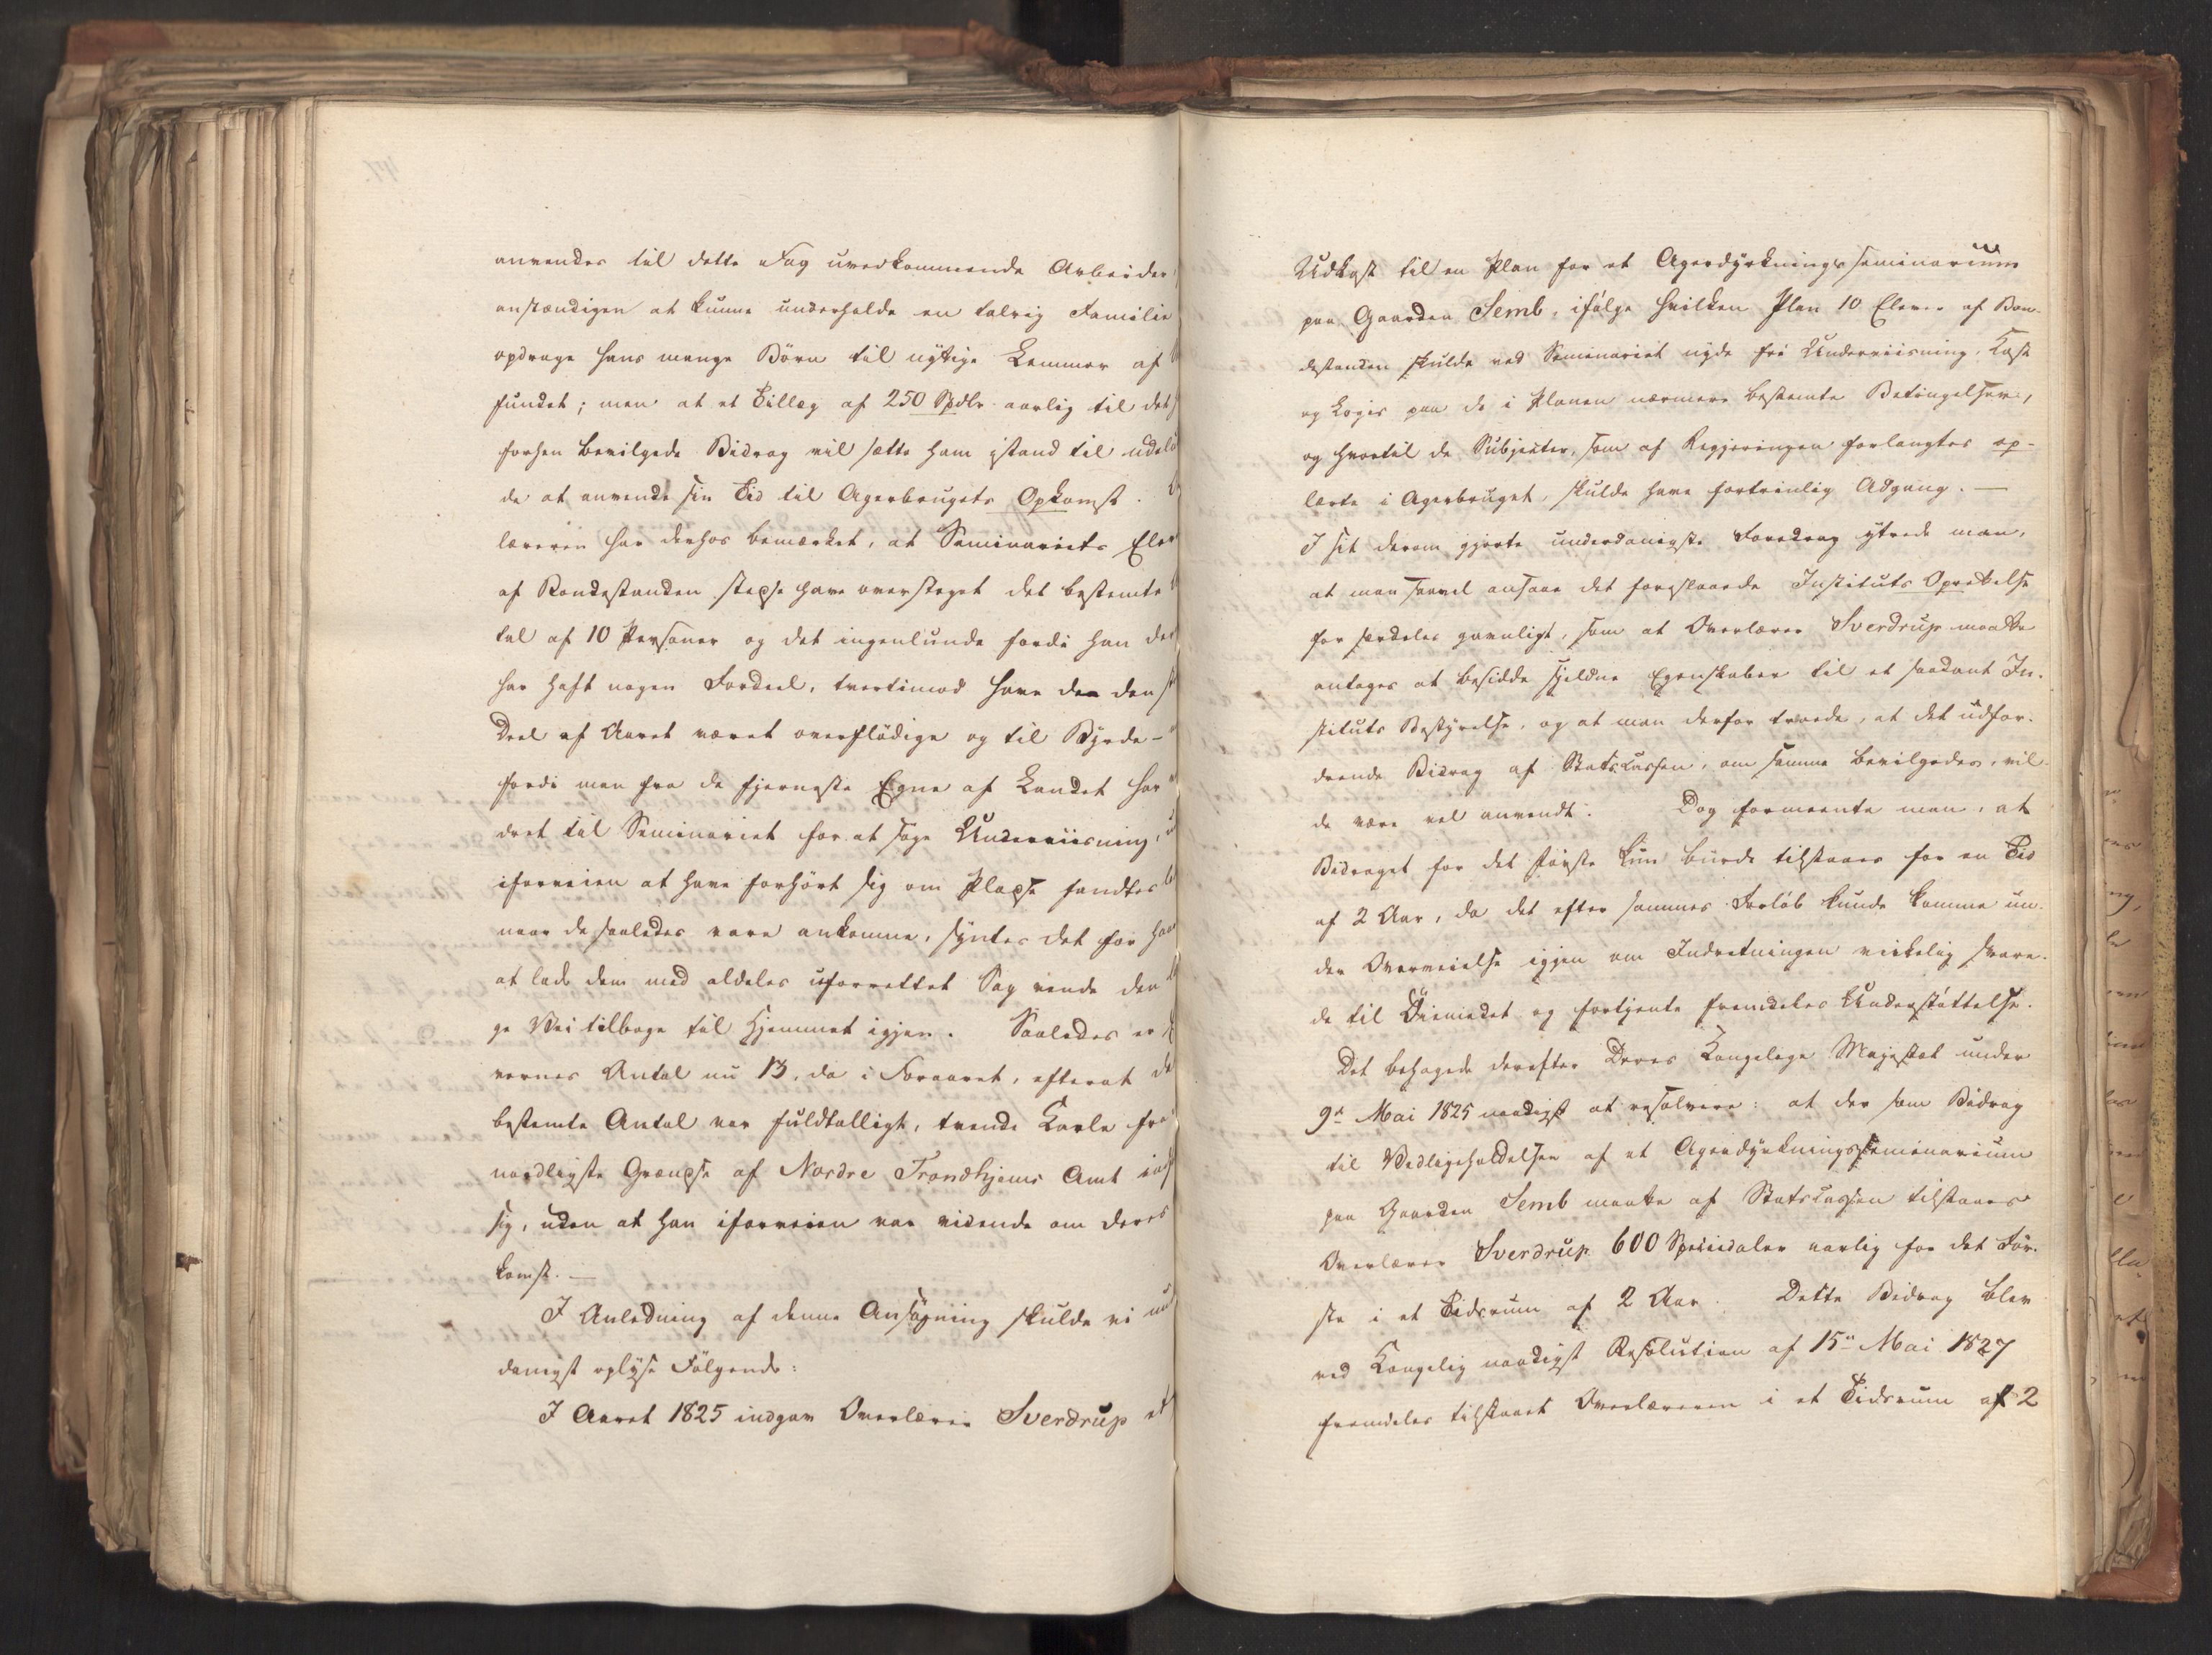 anvendes til dette Fag uvedkommende Arbeider
anstændigen at kunne underholde en talrig Familie
opdrage hans mange Børn til nyttige Lemmer af
fundet; men at et Tillæg af 250 Spdlr aarlig til det
forhen bevilgede Bidrag vil sætte ham istand til udelu
de at anvende sin Tid til Agerbrugets Opkomst.
læreren har derhos bemærket, at Seminariets Elev
af Bondestanden stedse have oversteget det bestemte
tal af 10 Personer og det ingenlunde fordi han der
har haft nogen Fordeel, tvertimod have de den st
Deel af Aaret været overflödige og til Byrde -
fordi man fra de fjerneste Egne af Landet har
dret til Seminariet for at søge Underviisning, u
iforveien at have forhört sig om Plads fandtes
naar de saaledes vare ankomne, syntes det for haa
at lade dem med aldeles uforrettet Sag vende den
ge Vei tilbage til Hjemmet igjen. Saaledes er
vernes Antal nu 13, da i Foraaret, efterat de
bestemte Antal var fuldtalligt, tvende Karle fra
nordligste Grændse af Nordre Trondhjems Amt ind
sig, uden at han iforveien var vidende om deres
komst. —
I Anledning af denne Ansøgning skulde vi und
danigst oplyse Fölgende:
I Aaret 1825 indgav Overlærer Sverdrup et
Udkast til en Plan for et Agerdyrkningsseminarium
paa Gaarden Semb, ifølge hvilken Plan 10 Elever af Bon-
destanden skulde ved Seminariet nyde fri Underviisning, Kost
og Logis paa de i Planen nærmere bestemte Betingelser,
og hvortil de Subjecter, som af Regjeringen forlangtes op-
lærte i Agerbruget, skulde have fortrinlig Adgang. —
I sit derom gjorte underdanigste Foredrag ytrede man,
at man saavel ansaae det foreslaaede Instituts Oprettelse
for særdeles gavnligt, som at Overlærer Sverdrup maatte
antages at besidde sjeldne Egenskaber til et saadant In-
stituts Bestyrelse, og at man derfor troede, at det udfor-
drende Bidrag af Statscassen, om samme bevilgedes, vil-
de være vel anvendt. Dog formeente man, at
Bidraget for det første kun burde tilstaaes for en Tid
af 2 Aar, da det efter sammes Forløb kunde komme un-
der Overveielse igjen om Indretningen virkelig svare-
de til Øiemedet og fortjente fremdeles Understøttelse.
Det behagede derefter Deres Kongelige Majestæt under
9de Mai 1825 naadigst at resolvere: at der som Bidrag
til Vedligeholdelsen af et Agerdyrkningsseminarium
paa Gaarden Semb maatte af Statscassen tilstaaes
Overlærer Sverdrup 600 Speciedaler aarlig for det Før-
ste i et Tidsrum af 2 Aar. Dette Bidrag blev
ved Kongelig naadigst Resolution af 15de Mai 1827
fremdeles tilstaaet Overlæreren i et Tidsrum af 2